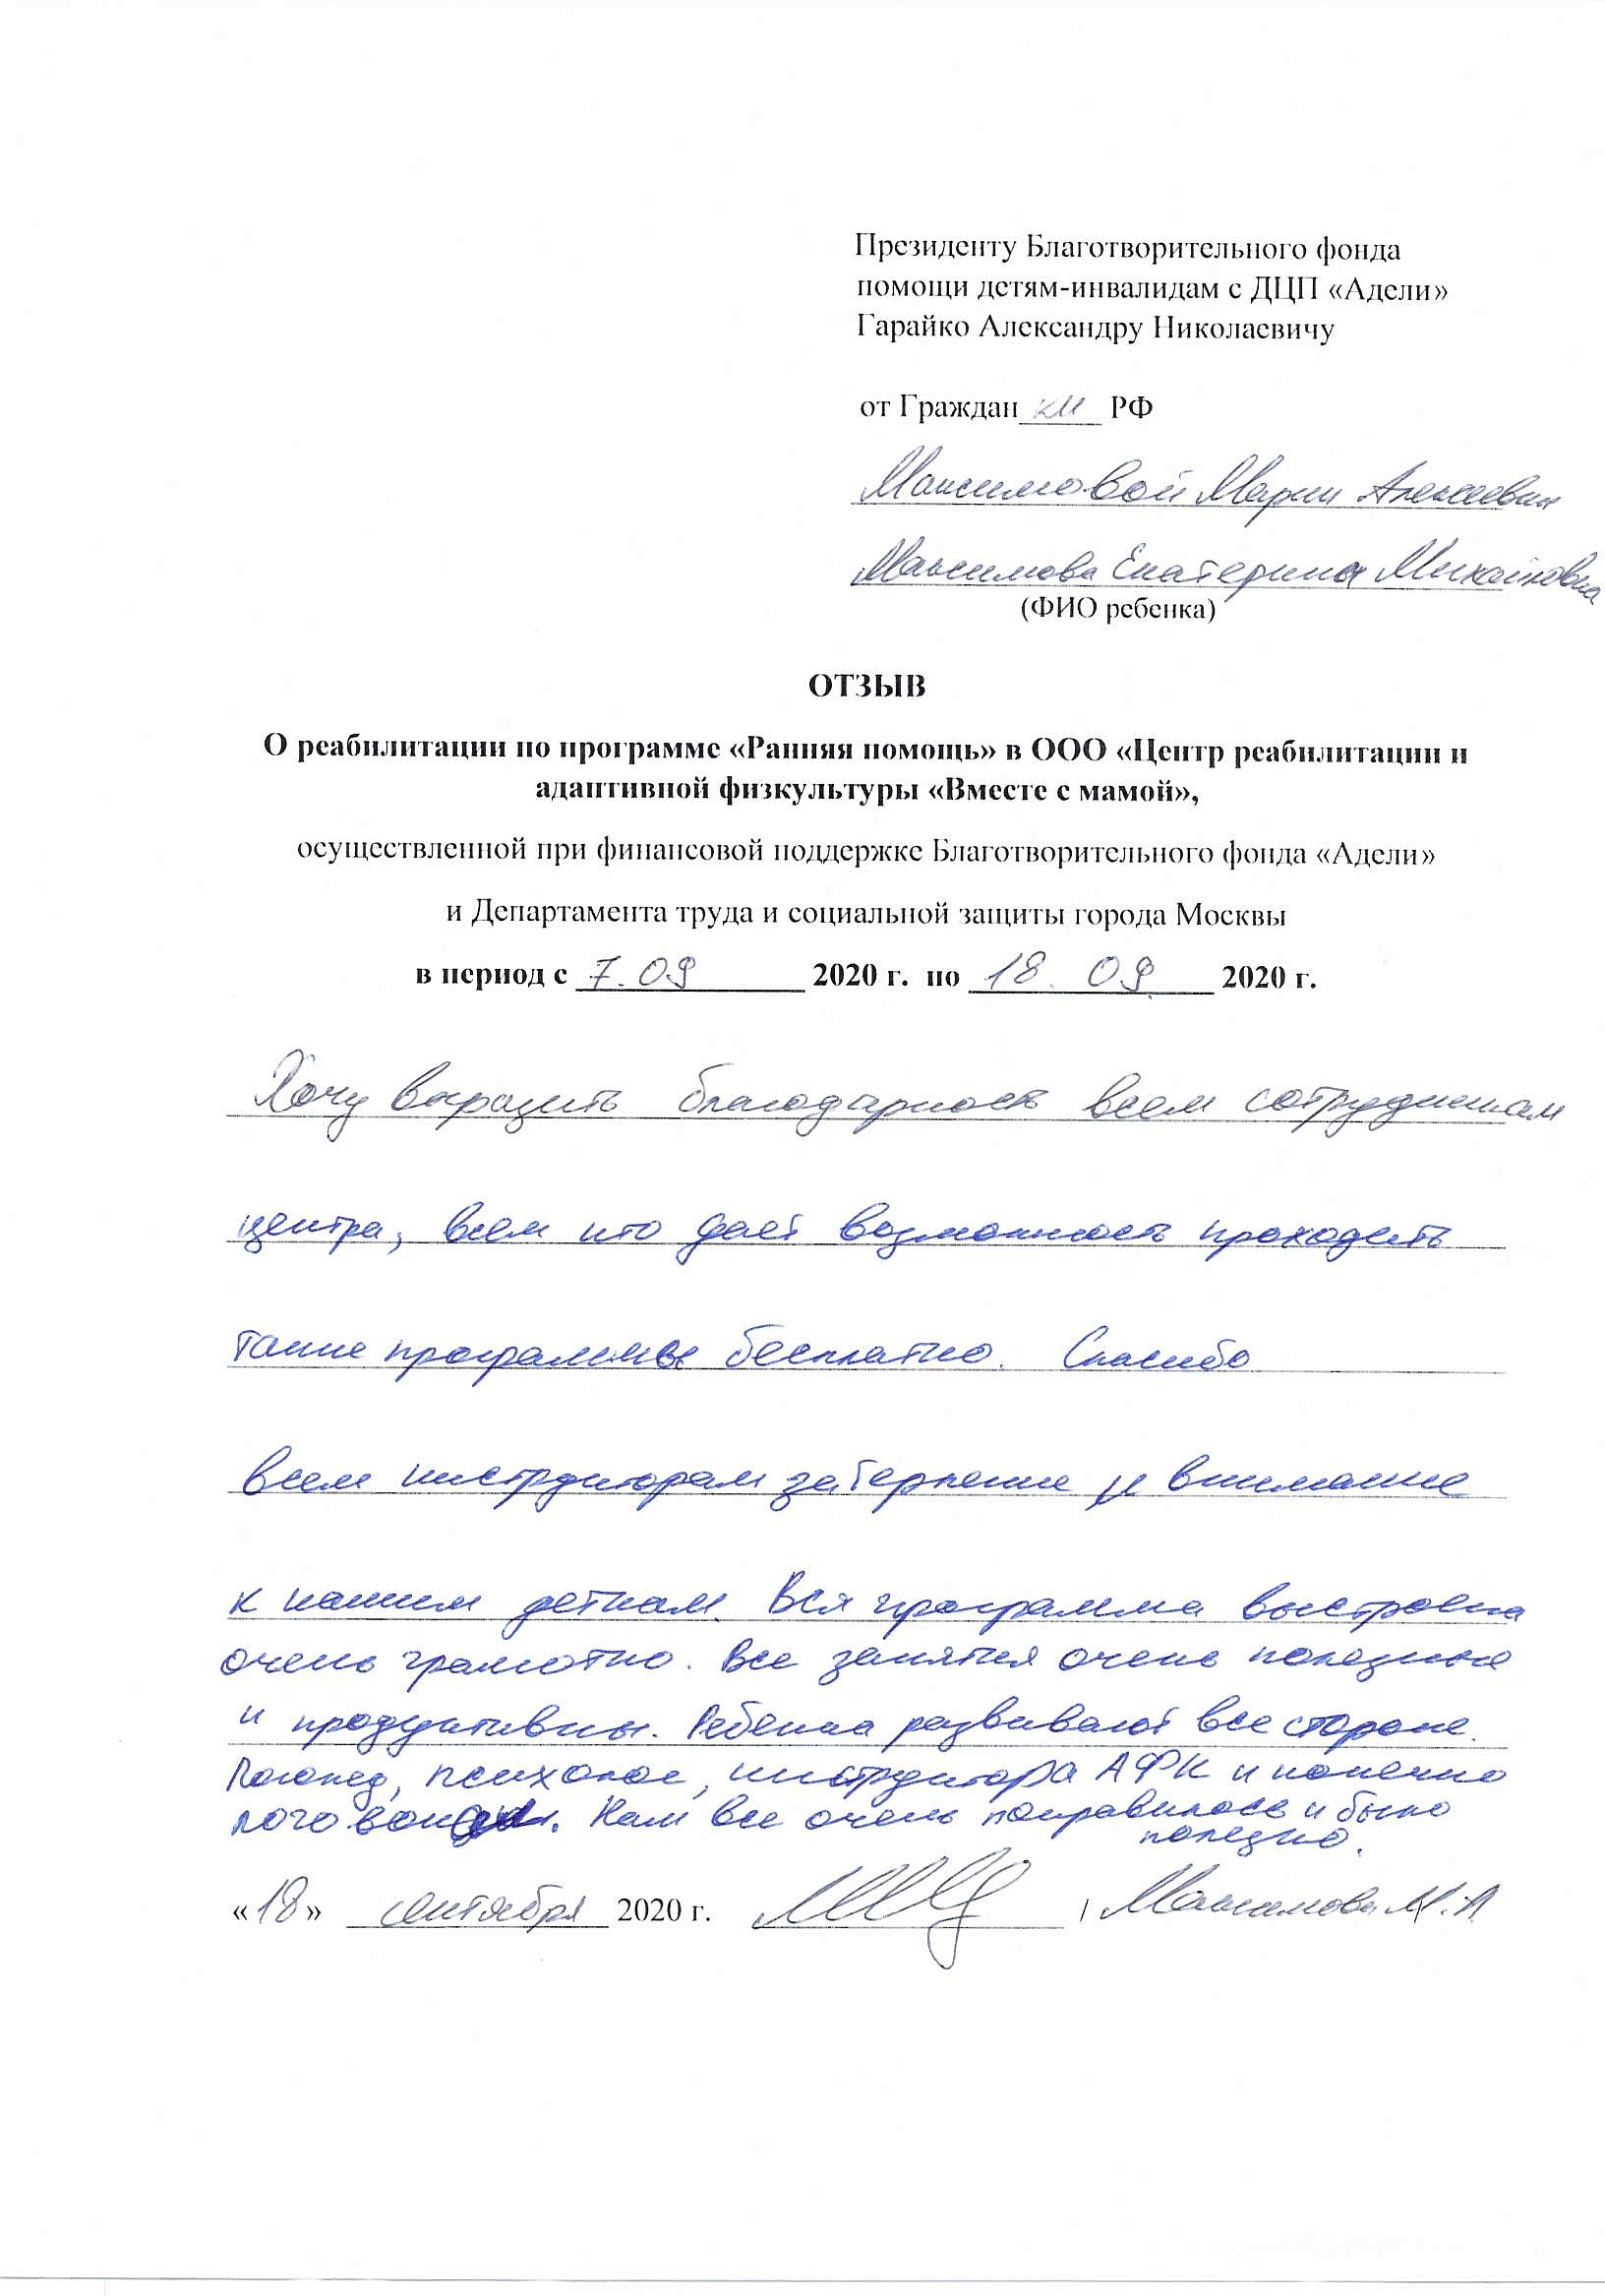 Президенту Благотворительного фонда
помощи детям-инвалидам с ДЦП «Адели»
Гарайко Александру Николаевичу
от Граждан ки РФ
Максимовой Марии Алексеевны
Максимова Екатерина Михайловна
(ФИО ребенка)
ОТЗЫВ
О реабилитации по программе «Ранняя помощь» в ООО «Центр реабилитации и
адаптивной физкультуры «Вместе с мамой»,
осуществленной при финансовой поддержке Благотворительного фонда «Адели»
и Департамента труда и социальной защиты города Москвы
в период с 7.09 2020 г. по 18.09 2020 г.
Хочу выразить благодарность всем сотрудникам
центра, всем кто дает возможность проходить
такие программы бесплатно. Спасибо
всем инструкторам за терпение и внимание
к нашим деткам. Вся программа выстроена
очень грамотно. Все занятия очень полезные
и продуктивны. Ребенка развивают все стороне.
Логопед, психолог, инструктора АФК и конечно
Нам все очень понравилось и было
полезно.
«18» сентября 2020 г. / Максимова М.А.